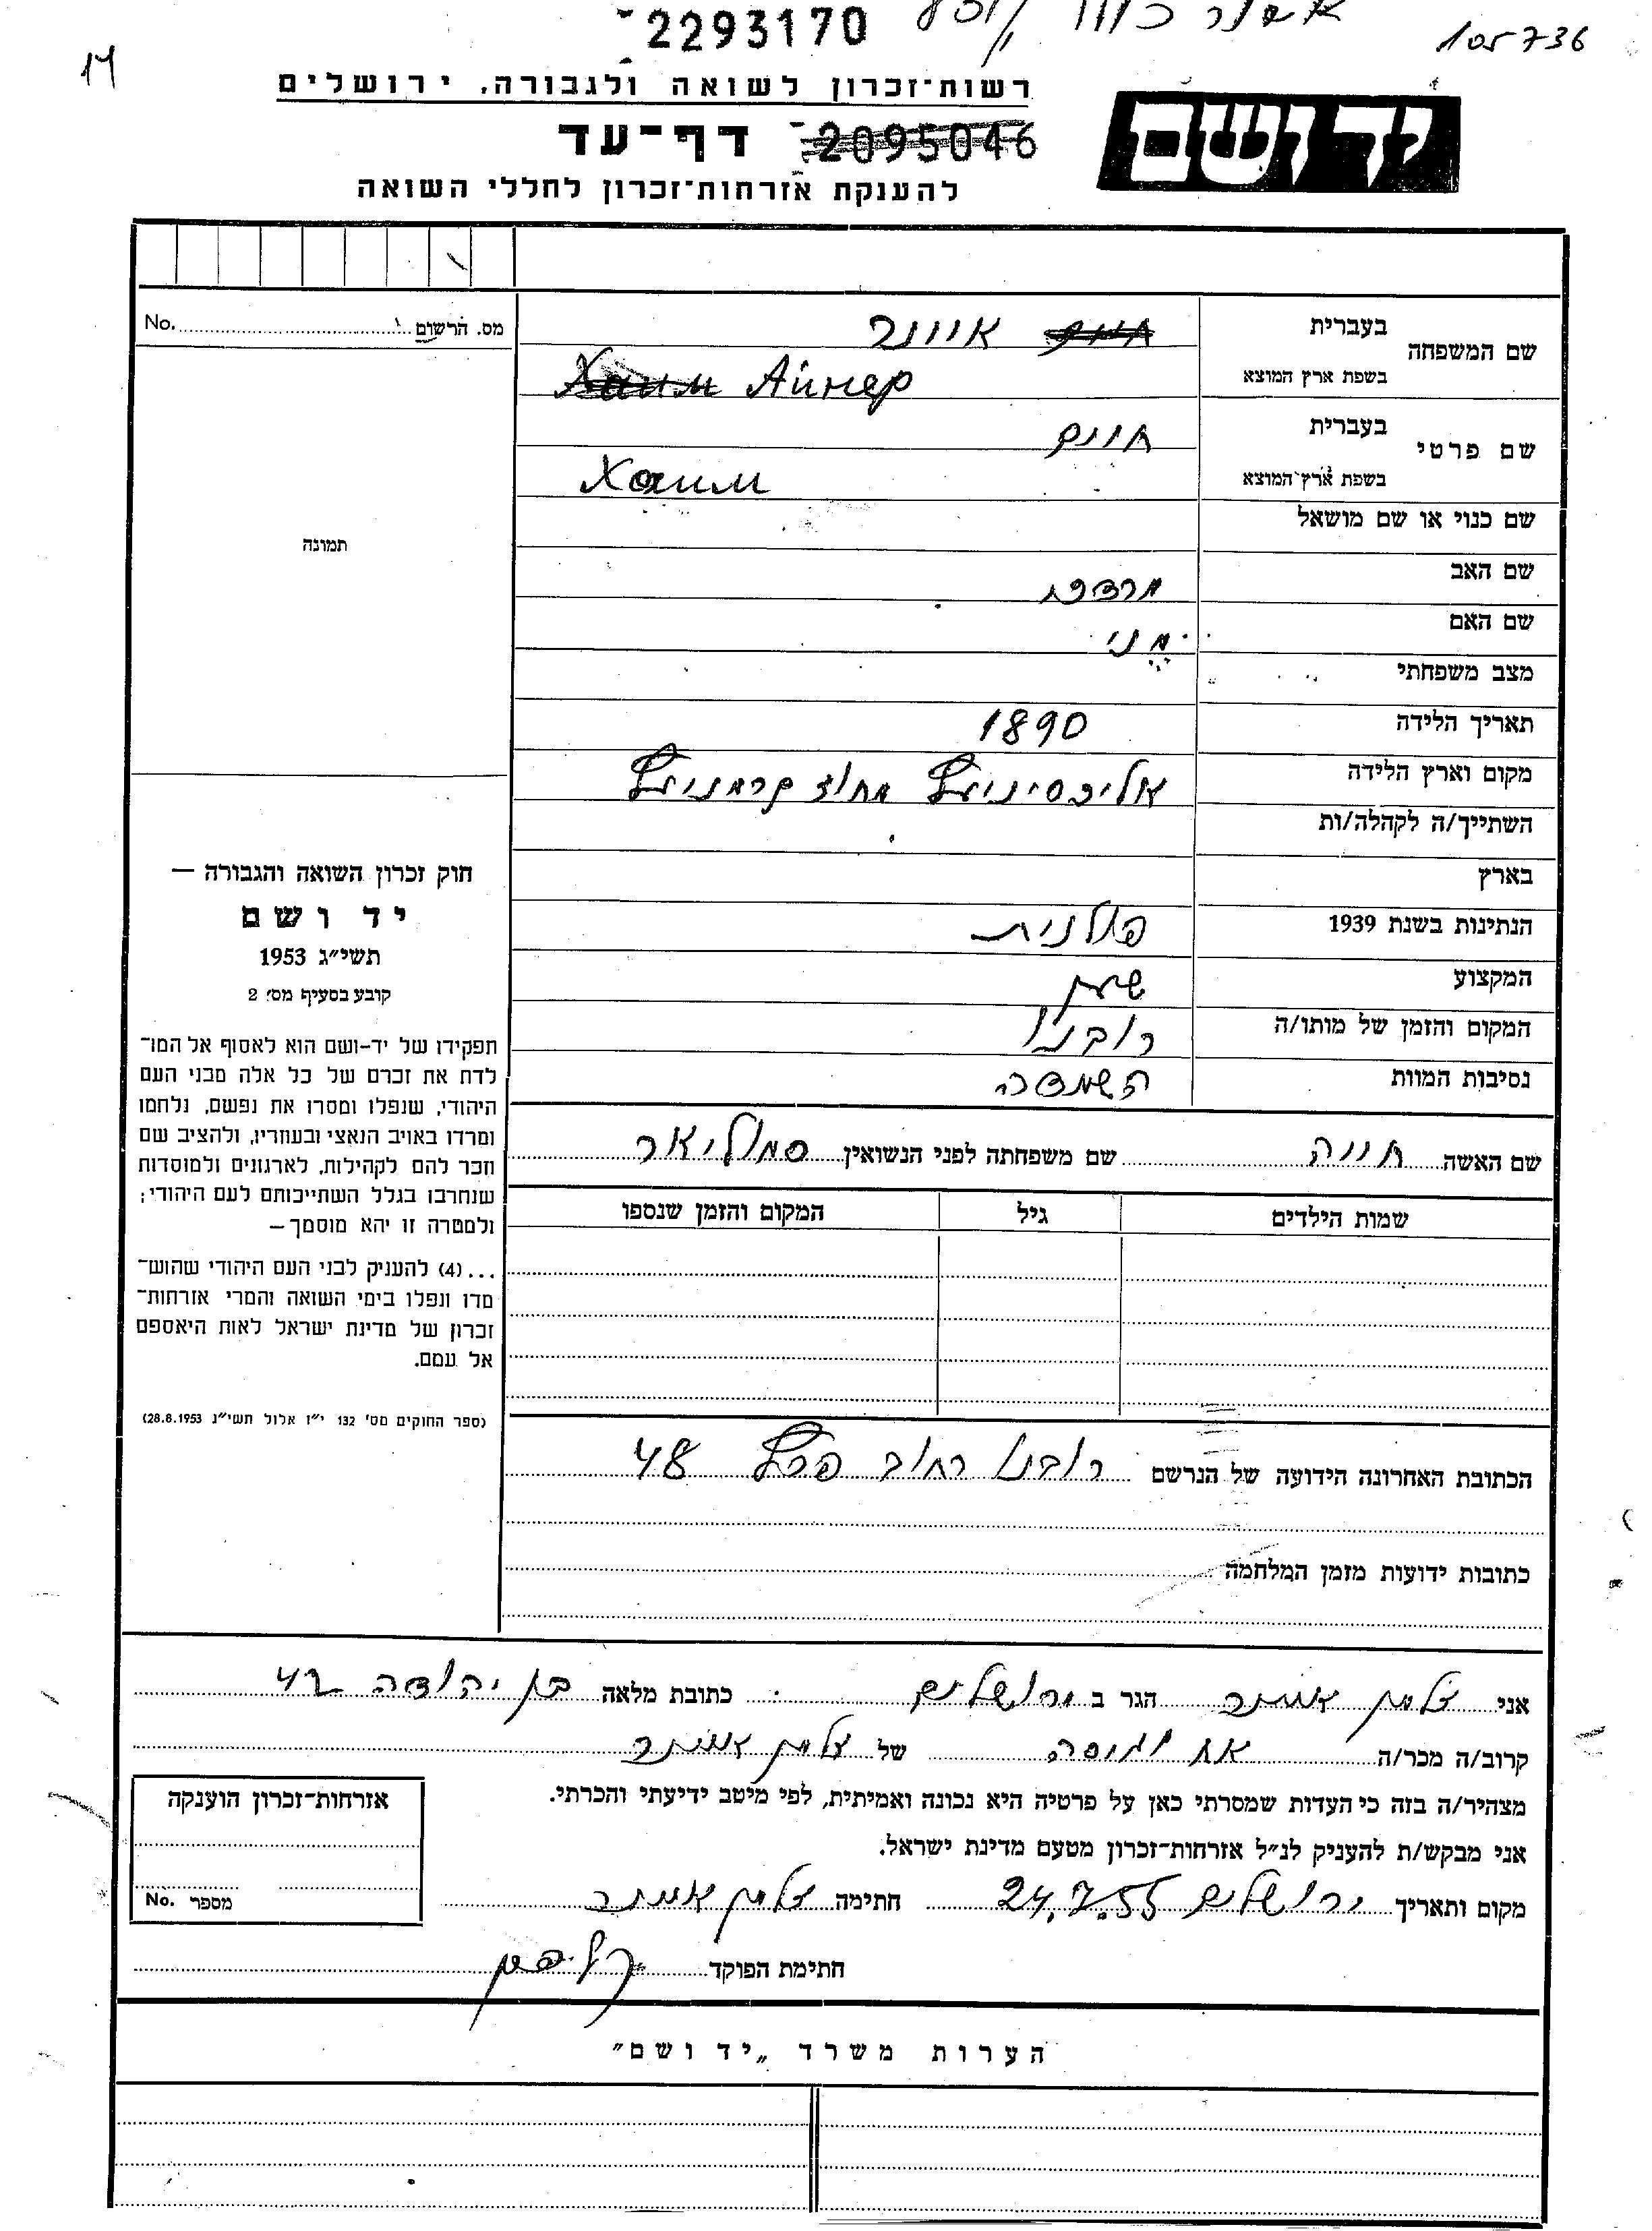 2293170
105736
14
רשות־זכרון לשואה ולגבורה, ירושלים
יד ושם
דף־עד 2095046
להענקת אזרחות־זכרון לחללי השואה
מס. הרשום No.
שם המשפחה
בעברית איינר
בשפת ארץ המוצא Хаим Айнер
שם פרטי
בעברית חיים
בשפת ארץ־המוצא Хаим
תמונה
שם כנוי או שם מושאל
שם האב מרדכי
שם האם מני
מצב משפחתי
תאריך הלידה 1890
מקום וארץ הלידה מחוז
השתייך/ה לקהלה/ות
בארץ
הנתינות בשנת 1939 פולנית
המקצוע שען
המקום והזמן של מותו/ה רובנו
נסיבות המוות השמדה
חוק זכרון השואה והגבורה —
יד ושם
תשי״ג 1953
קובע בסעיף מס׳ 2
תפקידו של יד-ושם הוא לאסוף אל המו־
לדת את זכרם של כל אלה מבני העם
היהודי, שנפלו ומסרו את נפשם, נלחמו
ומרדו באויב הנאצי ובעוזריו, ולהציב שם
וזכר להם לקהילות, לארגונים ולמוסדות
שנחרבו בגלל השתייכותם לעם היהודי;
ולמטרה זו יהא מוסמך —
... (4) להעניק לבני העם היהודי שהוש־
מדו ונפלו בימי השואה והמרי אזרחות־
זכרון של מדינת ישראל לאות היאספם
אל עמם.
(ספר החוקים מס׳ 132 י״ז אלול תשי״ג 28.8.1953)
שם האשה חייה שם משפחתה לפני הנשואין סמוליאר
שמות הילדים גיל המקום והזמן שנספו
הכתובת האחרונה הידועה של הנרשם רובנו רחוב פרץ 48
כתובות ידועות מזמן המלחמה
אני זלמן איינר הגר ב ירושלים כתובת מלאה בן יהודה 42
קרוב/ה מכר/ה של זלמן איינר
מצהיר/ה בזה כי העדות שמסרתי כאן על פרטיה היא נכונה ואמיתית, לפי מיטב ידיעתי והכרתי.
אני מבקש/ת להעניק לנ״ל אזרחות־זכרון מטעם מדינת ישראל.
מקום ותאריך ירושלים 24.7.55 חתימה זלמן איינר
חתימת הפוקד
אזרחות־זכרון הוענקה
מספר No.
הערות משרד „יד ושם״